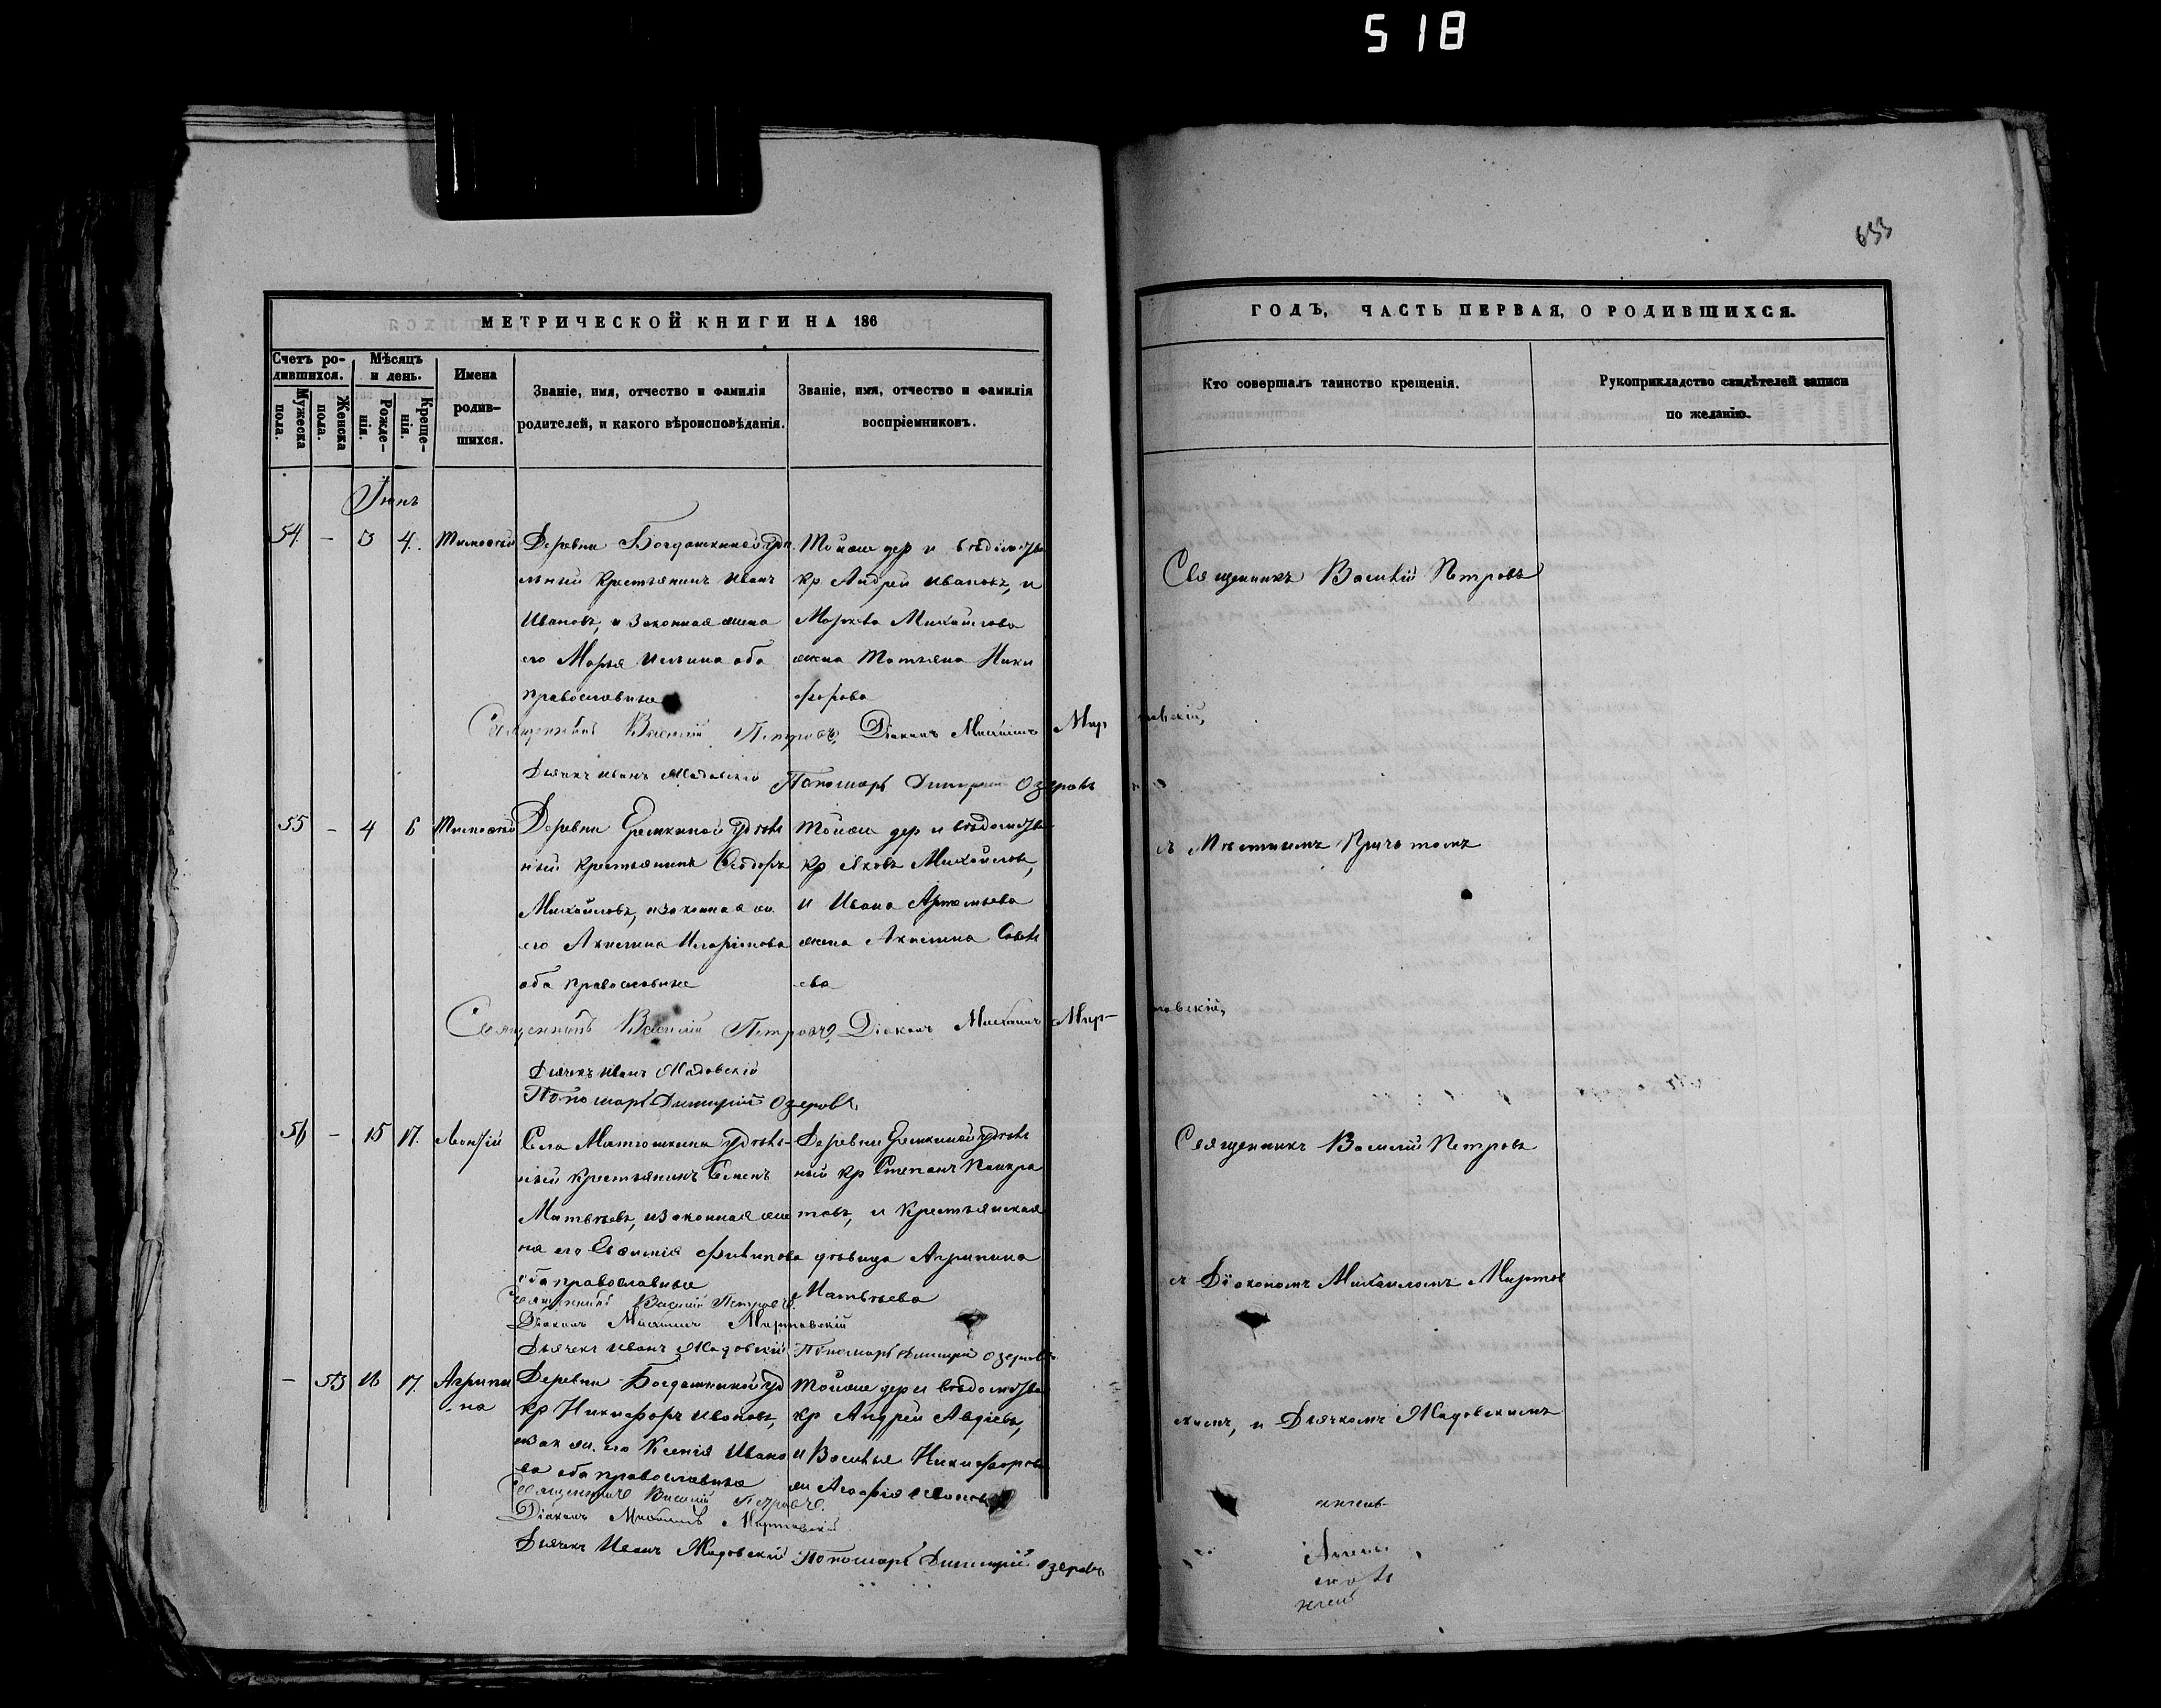 518
633
МЕТРИЧЕСКОЙ КНИГИ НА 186
Счетъ родившихся.
Мужеска пола.
Женска пола.
Мѣсяцъ и день.
Рожденія.
Крещенія.
Имена родившихся.
Званіе, имя, отчество и фамилія
родителей, и какого вѣроисповѣданія.
Званіе, имя, отчество и фамилія
воспріемниковъ.
Іюнь
54. - 3 4. Тимофей
Деревни Богдашкиной удѣ
льный крестьянинъ Иванъ
Ивановъ, и законная жена
его Марья Ильина оба
православные
Тойже дер и вѣдомства
кр Андрей Ивановъ, и
Маркева Михайлова
жена Татьяна Ники
форова
Священникъ Василій Петровъ, Діаконъ Михаилъ Мир товскій,
Дьячекъ Иванъ Жадовскій Пономарь Димитрій Озеровъ
55 - 4 6 Тимофей
Деревни Еремкиной удѣль
ный крестьянинъ Ѳеодоръ
Михайловъ, и законная ж.
его Акилина Иларіонова
оба православные
Тойже дер и вѣдомства
кр Яковъ Михайловъ,
и Ивана Артемьева
жена Акилина Савель
ева
Священникъ Василій Петровъ, Діаконъ Михаилъ Мир- товскій,
Дьячекъ Иванъ Жадовскій
Пономарь Димитрій Озеровъ,
56 - 15 17. Леонтій
Села Матюшкина удѣль-
ный крестьянинъ Семенъ
Матвѣевъ, и законная же
на его Евфимія Филипова
оба православные
Деревни Еремкиной удѣль
ный кр Степанъ Панкра
товъ, и крестьянская
дѣвица Агрипина
Матвѣева
Священникъ Василій Петровъ.
Діаконъ Михаилъ Миртовскій
Дьячекъ Иванъ Жадовскій Пономарь Димитрій Озеровъ
- 53 16 17. Агрипи
на
Деревни Богдашкиной уд
кр Никифоръ Ивановъ,
и зак ж. его Ксенія Ивано
ва оба православные
Тойже дер и вѣдомства
кр Андрей Авдѣевъ,
и Василья Никифорова
ж Агафія Иванова
Священникъ Василій Петровъ.
Діаконъ Михаилъ Миртовскій
Дьячекъ Иванъ Жадовскій Пономарь Димитрій Озеровъ
ГОДЪ, ЧАСТЬ ПЕРВАЯ, О РОДИВШИХСЯ.
Кто совершалъ таинство крещенія.
Рукоприкладство свидѣтелей записи
по желанію.
Священникъ Василій Петровъ
съ Мѣстнымъ Причтомъ
Священникъ Василій Петровъ
съ Діакономъ Михаиломъ Миртов
скимъ, и Дьячкомъ Жадовскимъ